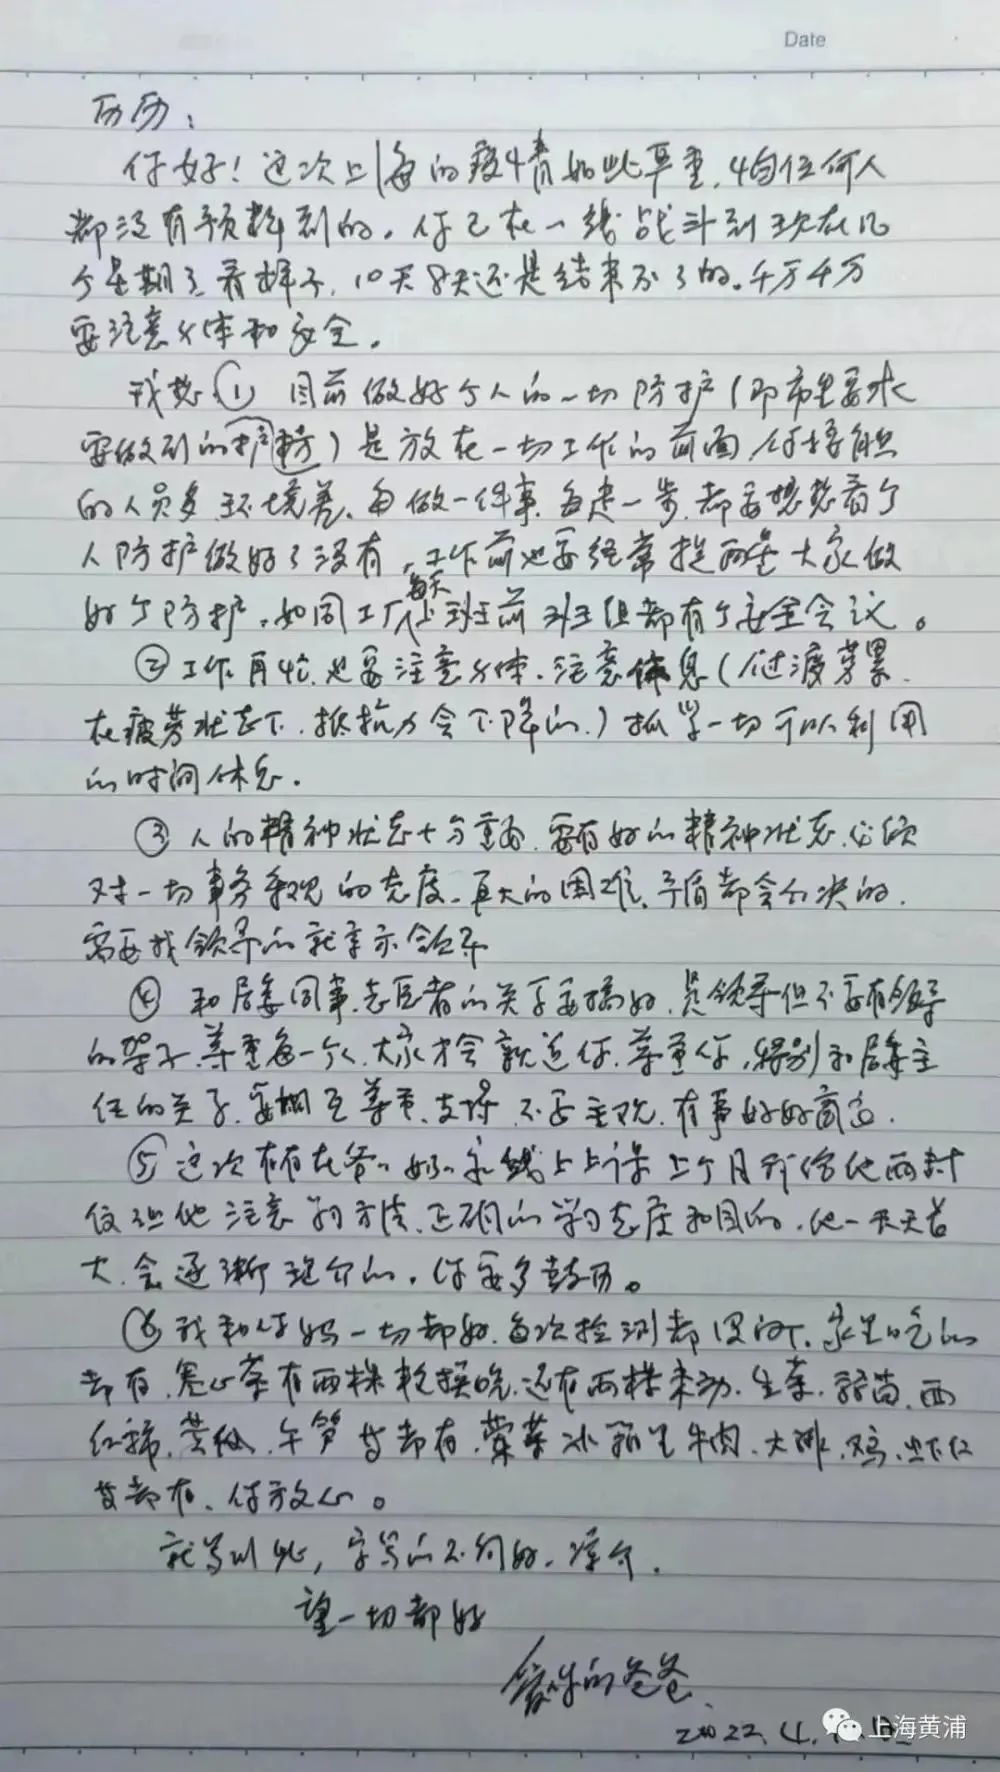 Date
历历：
你好！这次上海的疫情如此严重，恐怕任何人
都没有预料到的。你已在一线战斗到现在几
个星期了，看样子，10天8天还是结束不了的。千万千万
要注意身体和安全。
我想①目前做好个人的一切防护（即市里要求
要做到的防护）是放在一切工作的前面，你接触
的人员多，环境差，每做一件事，每走一步，都要想想看个
人防护做好了没有，工作前也要经常提醒大家做
好个防护，如同工厂每天上班前班组都有个安全会议。
②工作再忙，也要注意身体，注意休息（过渡劳累，
在疲劳状态下，抵抗力会下降的）抓紧一切可以利用
的时间休息。
③人的精神状态十分重要，要有好的精神状态，必须
对一切事务乐观的态度，再大的困难，矛盾都会解决的，
需要找领导的就请示领导
④和居委同事，志愿者的关系要搞好，是领导但不要有领导
的架子，尊重每一个人，大家才会亲近你，尊重你，特别和居委主
任的关系，要相互尊重，支持，不要主观，有事好好商量。
⑤这次在爷爷奶奶家线上上课，上个月我给他两封
信，让他注意学习方法，正确的学习态度和目的，他一天天长
大，会逐渐理解的，你要多鼓励。
⑥我和你妈一切都好，每次检测都没问题，家里吃的
都有，卷心菜有两棵，还有两棵未动，生菜，鸡毛，西
红柿，莴笋等都有，荤菜冰箱里牛肉，大排，鸡，虾仁
等都有，你放心。
就写到此，字写的不好，请谅解。
望一切都好
爱你的爸爸
2022.4.
上海黄浦